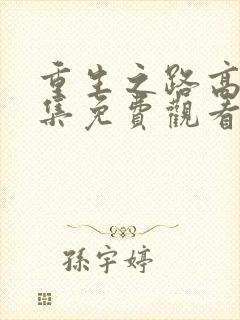 重生之路高
集免費觀看
孫宇婷